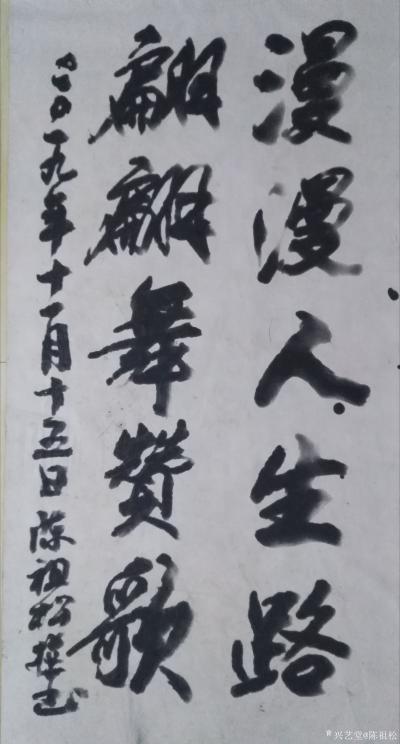 漫漫人生路
翩翩舞赞歌
二〇一九年十一月十五日陈祖松撰书
兴艺堂@陈祖松